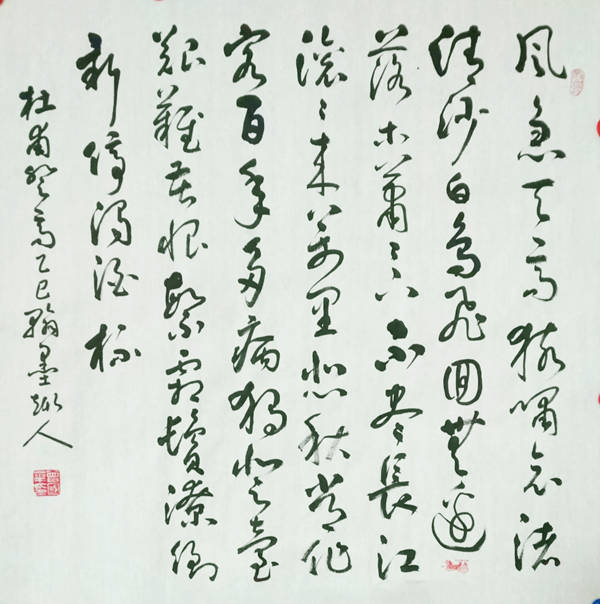 風急天高猿嘯哀渚
清沙白鳥飛回無邊
落木蕭々下不盡長江
滾々來萬里悲秋常作
客百年多病獨登臺
艱難苦恨繁霜鬢潦倒
新停濁酒杯
杜甫登高乙巳翰墨人